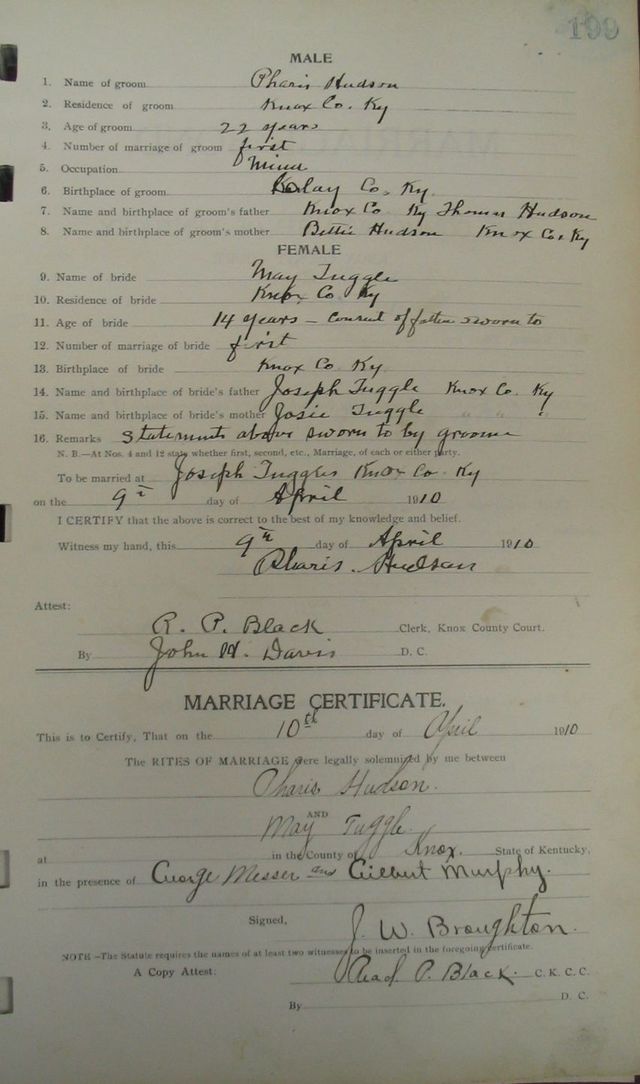 199
MALE
1. Name of groom Pharis Hudson
2. Residence of groom Knox Co. Ky
3. Age of groom 22 years
4. Number of marriage of groom first
5. Occupation Miner
6. Birthplace of groom Clay Co. Ky.
7. Name and birthplace of groom's father Knox Co Ky Thomas Hudson
8. Name and birthplace of groom's mother Bettie Hudson Knox Co. Ky
FEMALE
9. Name of bride May Tuggle
10. Residence of bride Knox Co Ky
11. Age of bride 14 years – Consent of father sworn to
12. Number of marriage of bride first
13. Birthplace of bride Knox Co Ky
14. Name and birthplace of bride's father Joseph Tuggle Knox Co. Ky
15. Name and birthplace of bride's mother Josie Tuggle " " "
16. Remarks Statements above sworn to by groom
N. B.—At Nos. 4 and 12 state whether first, second, etc., Marriage, of each or either party.
To be married at Joseph Tuggles Knox Co. Ky
on the 9th day of April 1910
I CERTIFY that the above is correct to the best of my knowledge and belief.
Witness my hand, this 9th day of April 1910
Pharis. Hudson
Attest:
R. P. Black Clerk, Knox County Court.
By John H. Davis D. C.
MARRIAGE CERTIFICATE.
This is to Certify, That on the 10th day of April 1910
The RITES OF MARRIAGE were legally solemnized by me between
Pharis Hudson.
AND
May Tuggle.
at in the County of Knox. State of Kentucky,
in the presence of George Messer and Gilbert Murphy.
Signed,
J. W. Broughton.
NOTE—The Statute requires the names of at least two witnesses to be inserted in the foregoing certificate.
A Copy Attest: Read P. Black. C. K. C. C.
By D. C.